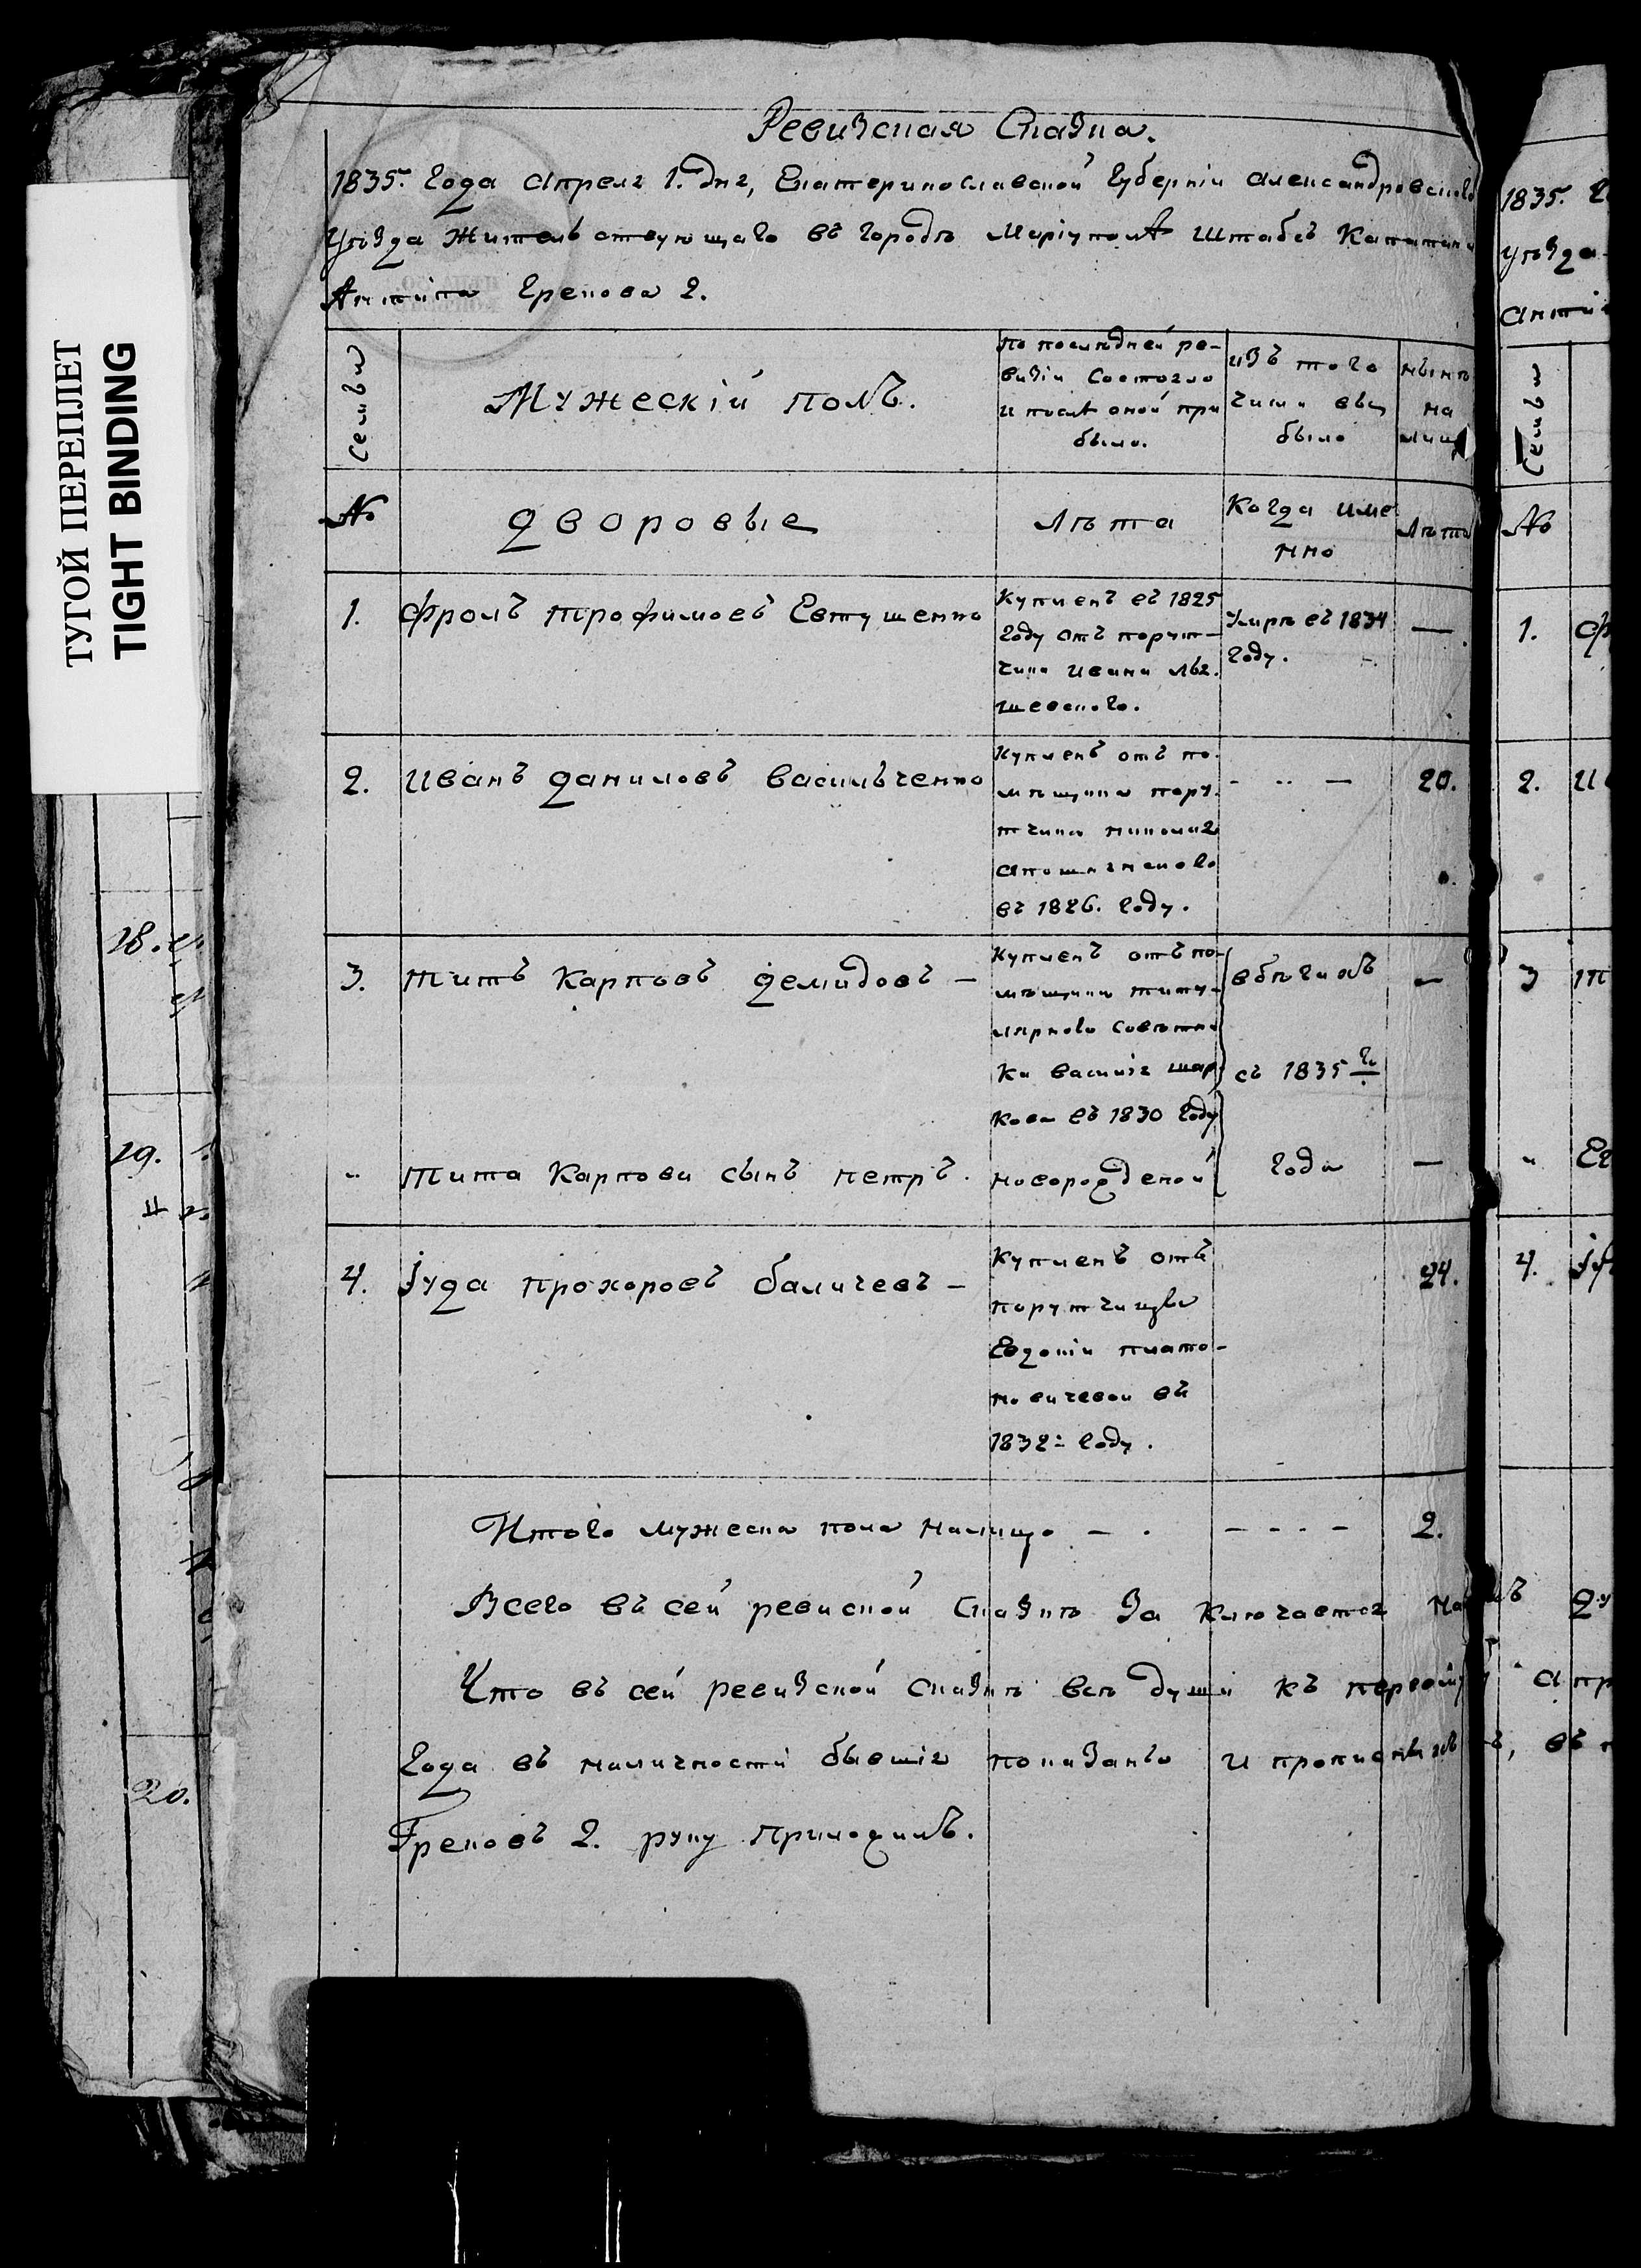 ТУГОЙ ПЕРЕПЛЕТ
TIGHT BINDING
18.
19.
20.
Ревизская Сказка.
1835. Года Апреля 1. дня, Екатеринославской Губерніи Александровского
Уѣзда Жительствующаго въ городѣ Маріуполѣ Штабсъ Капитана
Антипа Грекова 2.
Семьи
Мужескій полъ.
По последней ре-
визіи Состояло
и послѣ оной при
было.
изъ того
числа вы
было
нынѣ
на
лицо
№
Дворовые
Лѣта
Когда име
нно
Лѣта
1. Фролъ Трофимовъ Евтушенко
Купленъ въ 1825
Году отъ порут-
чика Ивана
шевского.
Умре въ 1834
Году.
—
2. Иванъ Даниловъ Васильченко
Купленъ отъ по-
мѣщика пору-
тчика Николая
въ 1826. Году.
- - —
20.
3. Титъ Карповъ Демидовъ —
Купленъ отъ по-
мѣщика титу-
лярнаго Советни
ка Василія Шар
кова въ 1830 Году
вбѣгахъ
съ 1835 го
Года
—
" Тита Карпова сынъ Петръ.
новорожденой
—
4. Іуда Прохоровъ Баличевъ —
Купленъ отъ
порутчицы
Евдокіи Плато-
новичевой въ
1832: Году.
24.
Итого мужеска пола налицо — . - - - - 2.
Всего въ сей ревиской Сказкѣ За ключается На
Что въ сей ревизской Сказкѣ всѣ души къ первому
Года въ наличности бывшія показаны и
Грековъ 2. руку Приложилъ.
1835. Г
Уѣзда
Анти
Семьи
№
1. Ф
2. И
3 Т
" Ег
4. І
ъ ду
Апр
въ